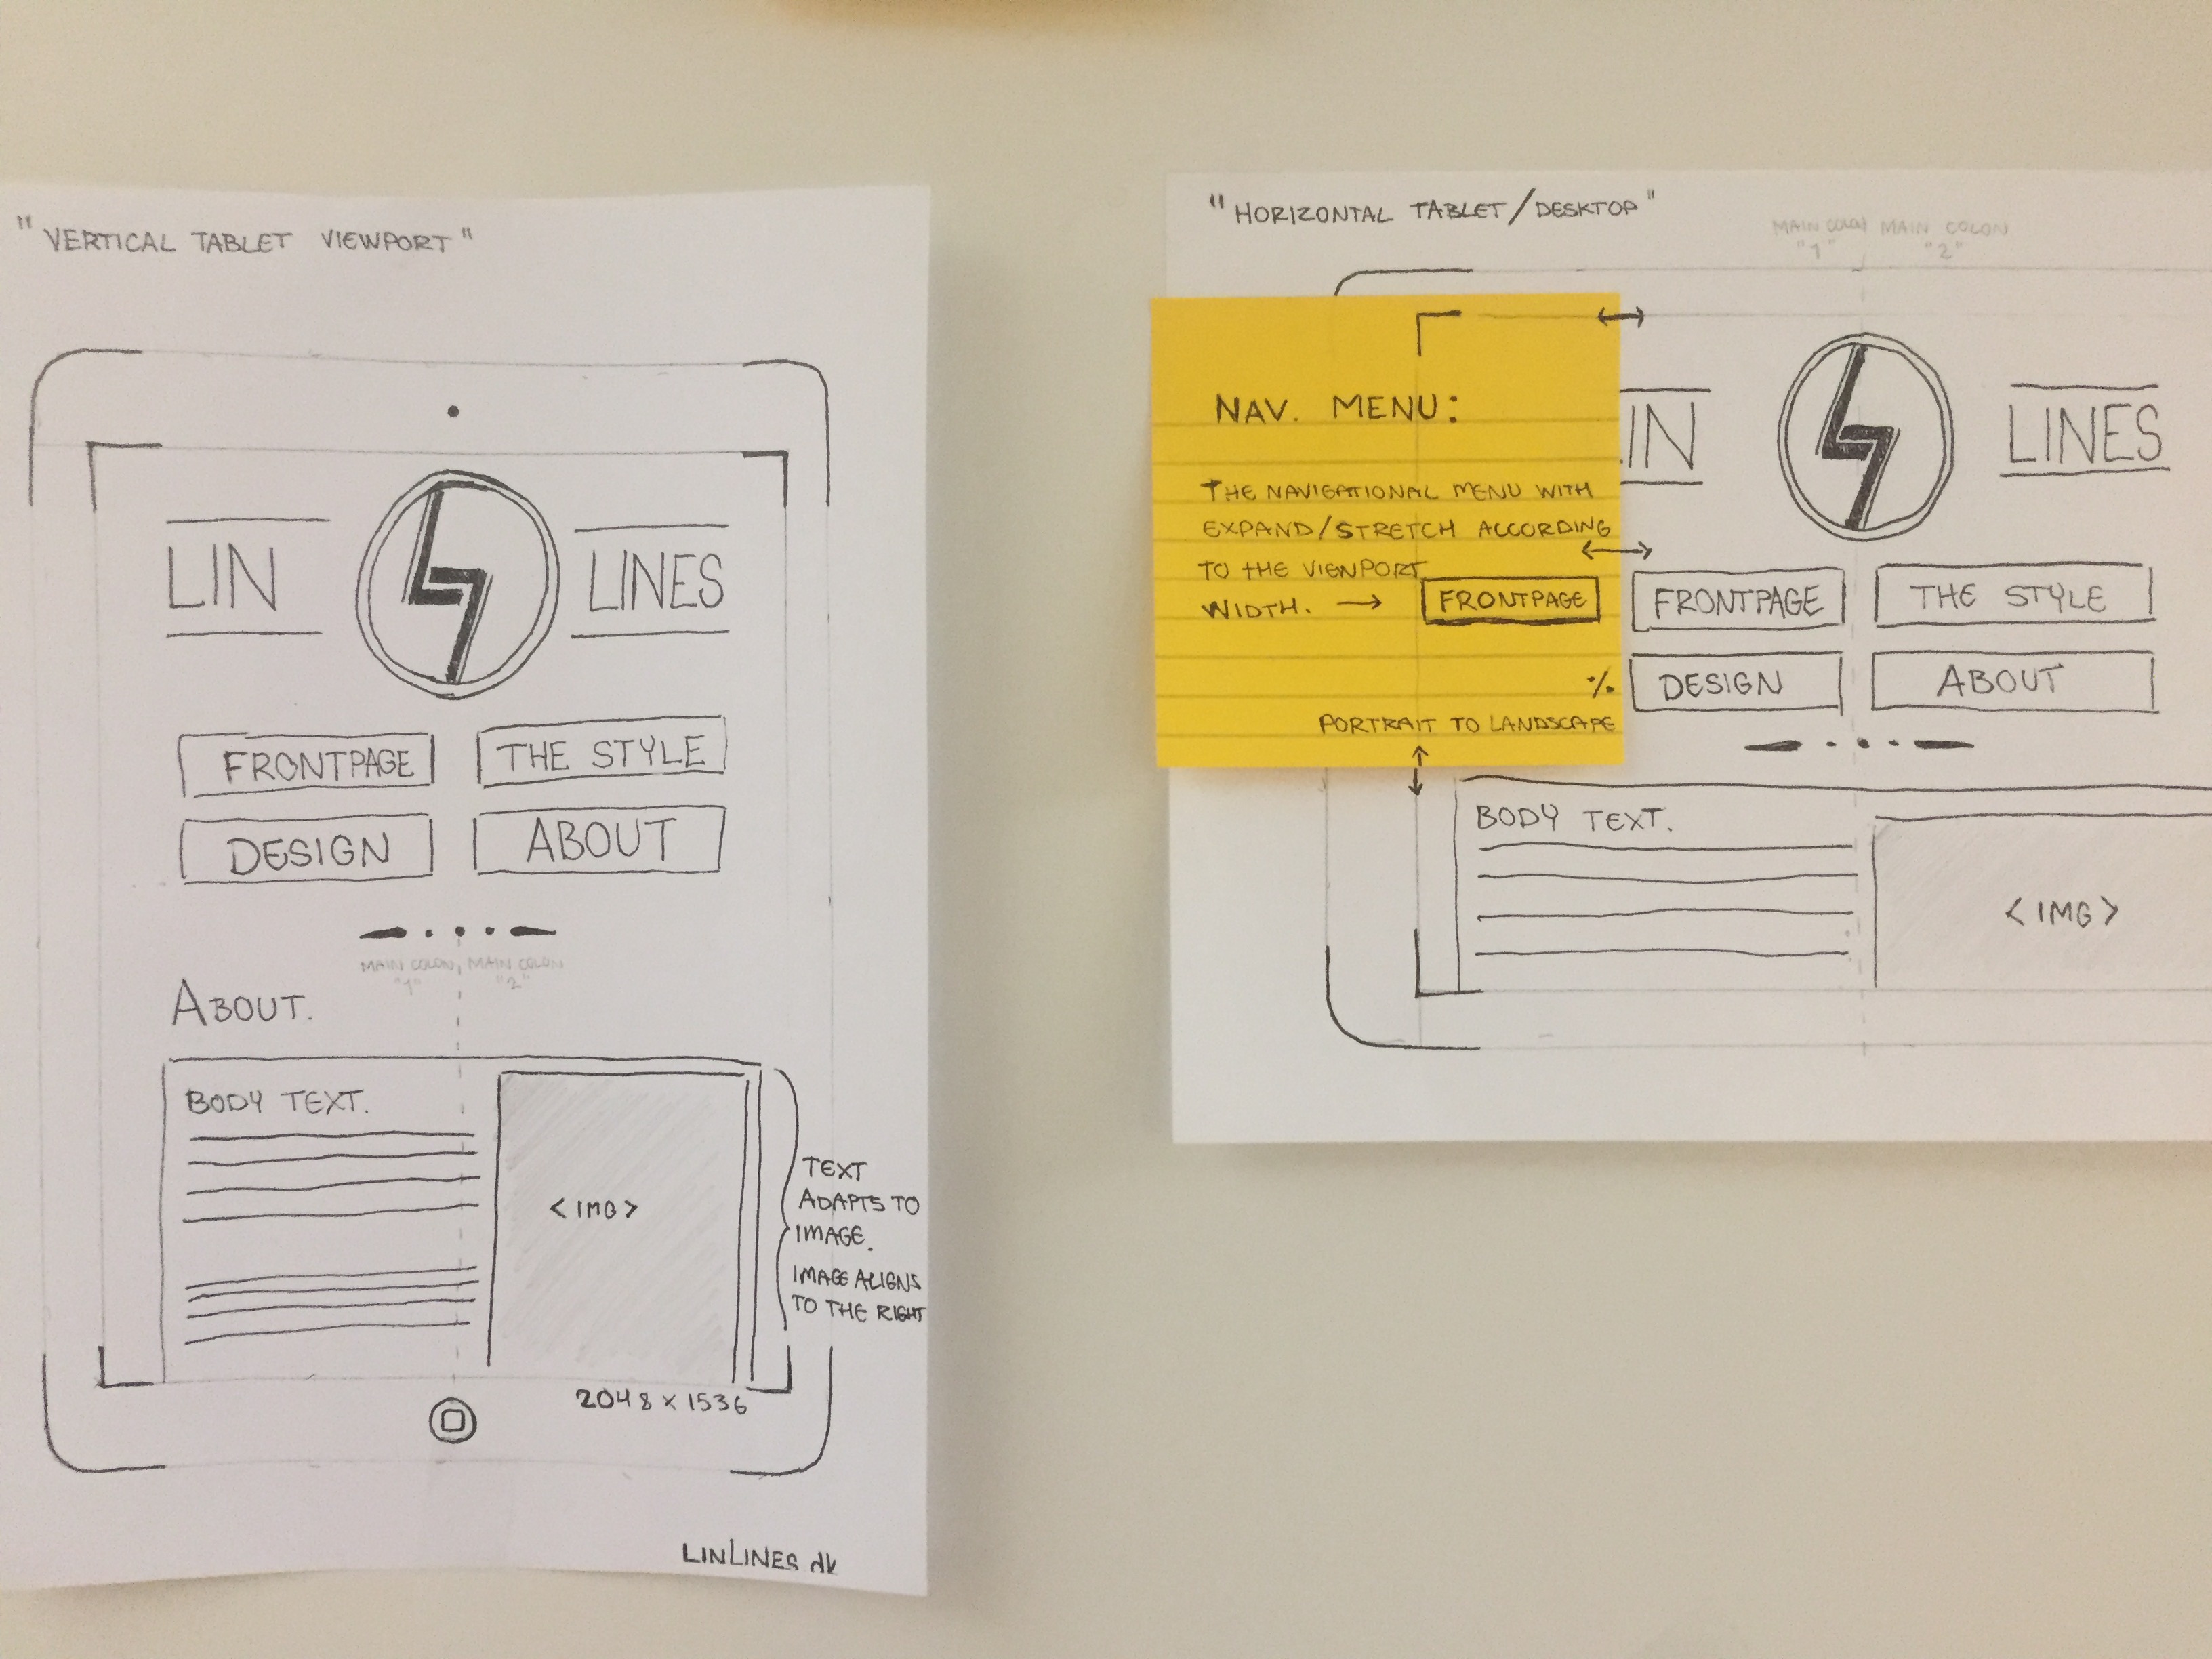 "VERTICAL TABLET VIEWPORT"
LIN
LINES
FRONTPAGE
THE STYLE
DESIGN
ABOUT
MAIN COLON MAIN COLON
"1" "2"
ABOUT.
BODY TEXT.
<IMG>
TEXT
ADAPTS TO
IMAGE.
IMAGE ALIGNS
TO THE RIGHT
2048 x 1536
LINLINES dk
"HORIZONTAL TABLET/DESKTOP"
MAIN COLON MAIN COLON
"1" "2"
NAV. MENU:
THE NAVIGATIONAL MENU WITH
EXPAND/STRETCH ACCORDING
TO THE VIEWPORT
WIDTH. → FRONTPAGE
%
PORTRAIT TO LANDSCAPE
IN
LINES
FRONTPAGE
THE STYLE
DESIGN
ABOUT
BODY TEXT.
<IMG>